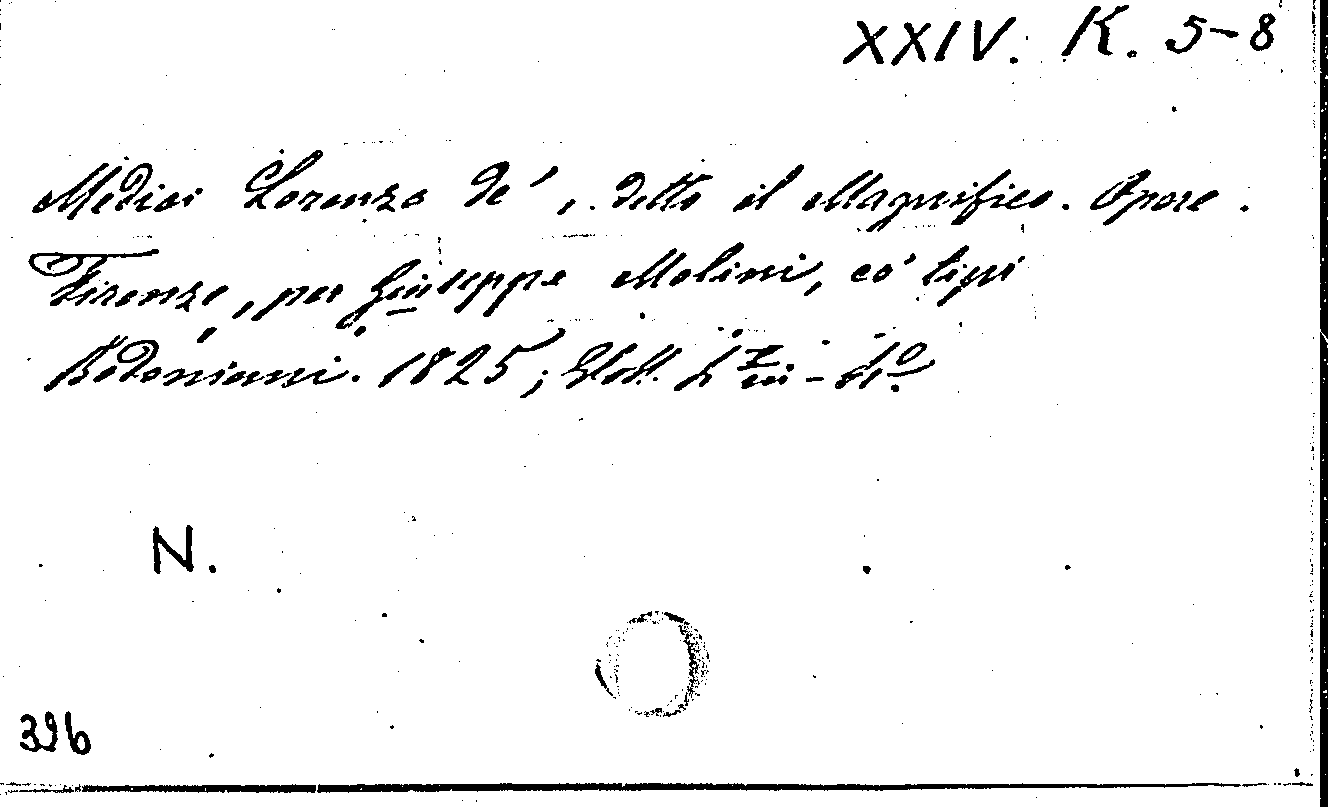 XXIV. K. 5-8
Medici Lorenzo de', detto il Magnifico. Opere.
Firenze, per Giuseppe Molini, co' tipi
Bodoniani. 1825; Voll. 4 in-4º.
N.
396